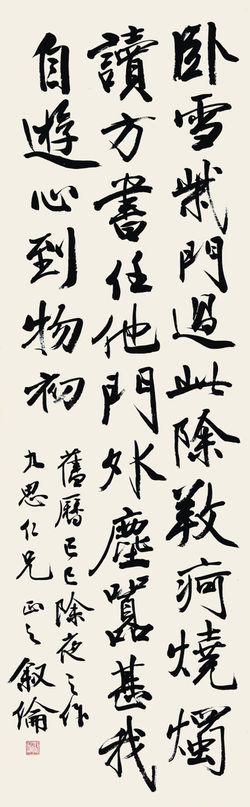 卧雪柴門過此除養疴燒燭
讀方書任他門外塵囂甚我
自遊心到物初
舊曆己巳除夜之作
九思仁兄正之 敘倫